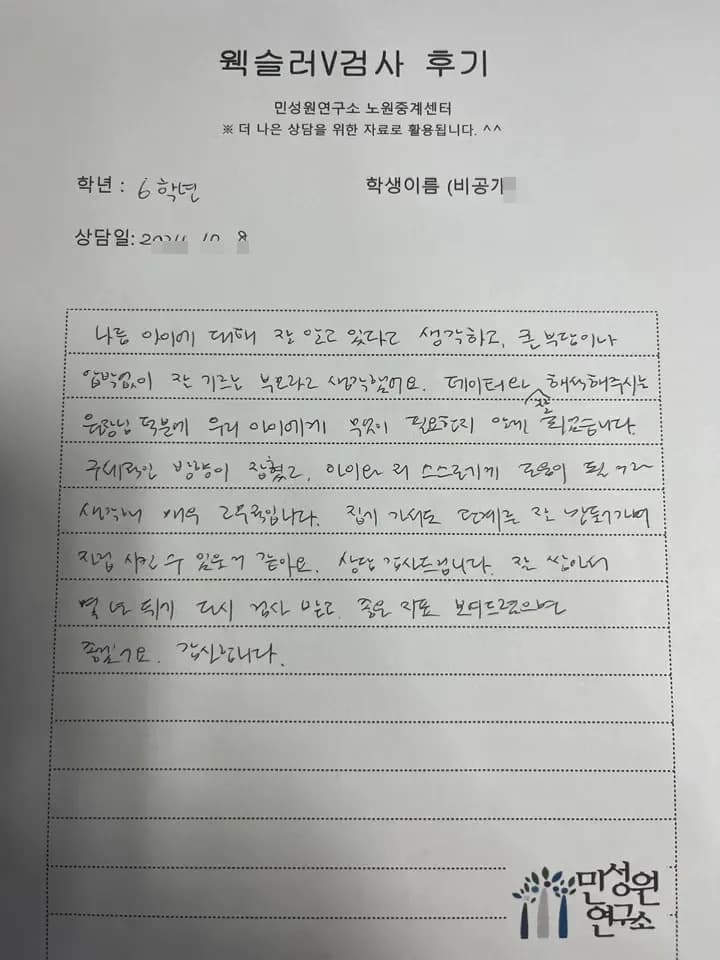 웩슬러V검사 후기
민성원연구소 노원중계센터
※ 더 나은 상담을 위한 자료로 활용됩니다. ^^
학년 : 6학년
학생이름 (비공개
상담일:
나름 아이에 대해 잘 알고 있다고 생각하고, 큰 부담이나
압박없이 잘 기르는 부모라고 생각했어요. 데이터와 잘 해석해주시는
원장님 덕분에 우리 아이에게 무엇이 필요한지 알게 되었습니다.
구체적인 방향이 잡혔고, 아이와 저 스스로에게 도움이 될 거라
생각해 매우 고무적입니다. 집에 가서도 단계를 잘 밟아가며
직접 시킬 수 있을거 같아요. 상담 감사드립니다. 잘 쌓아서
몇 년 뒤에 다시 검사 받고, 좋은 지표 보여드렸으면
좋겠어요. 감사합니다.
민성원
연구소